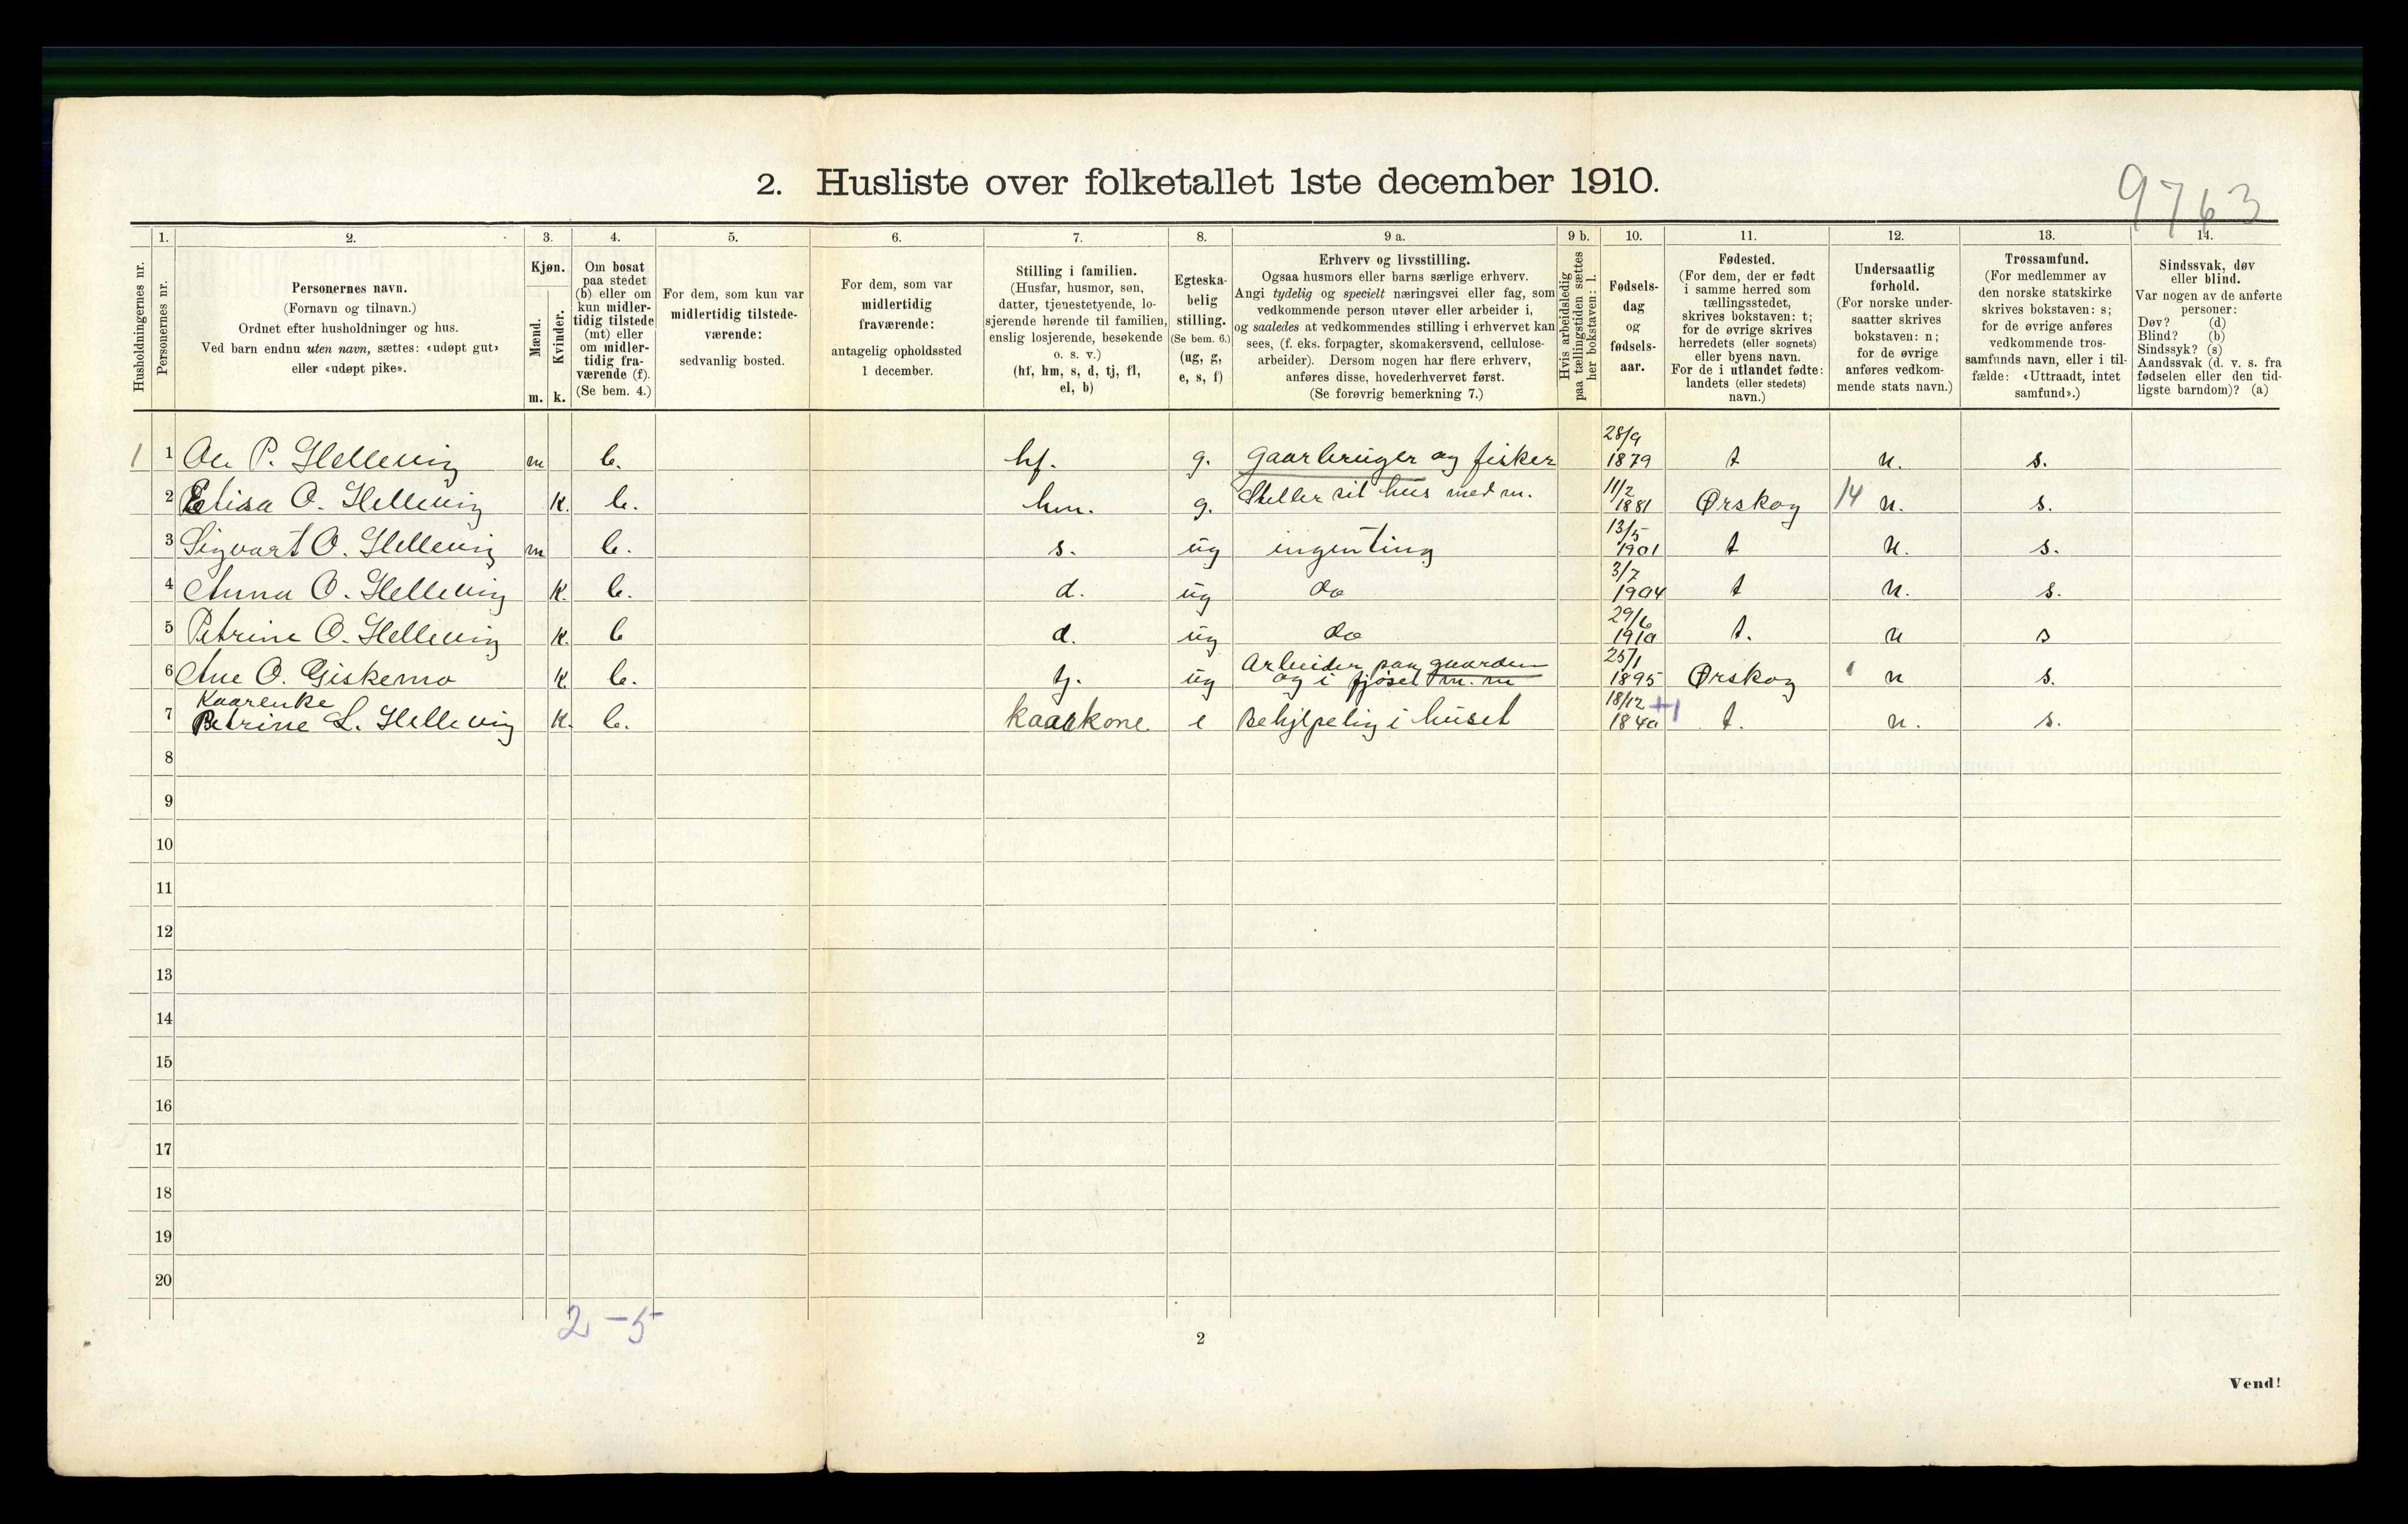 2. Husliste over folketallet 1ste december 1910.
9763
1. 2. 3. 4. 5. 6. 7. 8. 9 a. 9 b. 10. 11. 12. 13. 14.
Husholdningernes nr.
Personernes nr.
Personernes navn.
(Fornavn og tilnavn.)
Ordnet efter husholdninger og hus.
Ved barn endnu uten navn, sættes: «udøpt gut»
eller «udøpt pike».
Kjøn.
Mænd.
Kvinder.
m. k.
Om bosat
paa stedet
(b) eller om
kun midler-
tidig tilstede
(mt) eller
om midler-
tidig fra-
værende (f).
(Se bem. 4.)
For dem, som kun var
midlertidig tilstede-
værende:
sedvanlig bosted.
For dem, som var
midlertidig
fraværende:
antagelig opholdssted
1 december.
Stilling i familien.
(Husfar, husmor, søn,
datter, tjenestetyende, lo-
sjerende hørende til familien,
enslig losjerende, besøkende
o. s. v.)
(hf, hm, s, d, tj, fl,
el, b)
Egteska-
belig
stilling.
(Se bem. 6.)
(ug, g,
e, s, f)
Erhverv og livsstilling.
Ogsaa husmors eller barns særlige erhverv.
Angi tydelig og specielt næringsvei eller fag, som
vedkommende person utøver eller arbeider i,
og saaledes at vedkommendes stilling i erhvervet kan
sees, (f. eks. forpagter, skomakersvend, cellulose-
arbeider). Dersom nogen har flere erhverv,
anføres disse, hovederhvervet først.
(Se forøvrig bemerkning 7.)
Hvis arbeidsledig
paa tællingstiden sættes
her bokstaven: l.
Fødsels-
dag
og
fødsels-
aar.
Fødested.
(For dem, der er født
i samme herred som
tællingsstedet,
skrives bokstaven: t;
for de øvrige skrives
herredets (eller sognets)
eller byens navn.
For de i utlandet fødte:
landets (eller stedets)
navn.)
Undersaatlig
forhold.
(For norske under-
saatter skrives
bokstaven: n;
for de øvrige
anføres vedkom-
mende stats navn.)
Trossamfund.
(For medlemmer av
den norske statskirke
skrives bokstaven: s;
for de øvrige anføres
vedkommende tros-
samfunds navn, eller i til-
fælde: «Uttraadt, intet
samfund».)
Sindssvak, døv
eller blind.
Var nogen av de anførte
personer:
Døv? (d)
Blind? (b)
Sindssyk? (s)
Aandssvak (d. v. s. fra
fødselen eller den tid-
ligste barndom)? (a)
1 1 P. Hellevig m b. hf. g. gaarbruger og fisker 28/9 1879 t n. s.
2 Elisa O. Hellevig K. b. hm. g. Steller sit hus med m. 11/2 1881 Ørskog 14 n. s.
3 Sigvart O. Hellevig m b. s. ug ingenting 13/5 1901 t n. s.
4 Anna O. Hellevig K. b. d. ug do 3/7 1904 t n. s.
5 Petrine O. Hellevig K. b d. ug do 29/6 1910 t. n s
6 Ane O. Giskemo K. b. tj. ug Arbeider paa gaarden og i fjøset m. m 25/1 1895 Ørskog n s.
7 Kaarenke Petrine L. Hellevig K. b. kaarkone e Behjelpelig i huset 18/12 1840 +1 t. n. s.
8
9
10
11
12
13
14
15
16
17
18
19
20
2-5
2
Vend!